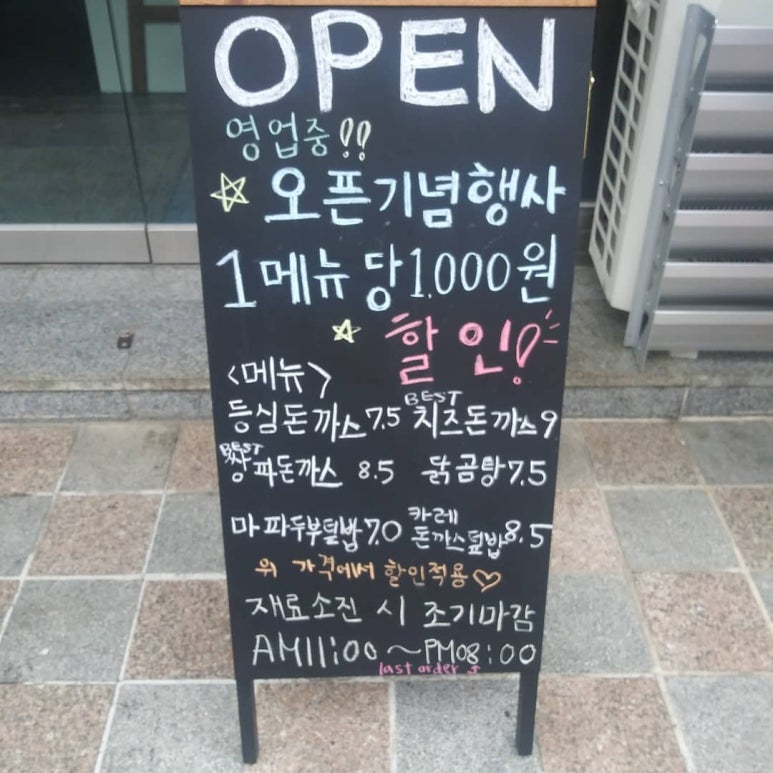 OPEN
영업중!!
오픈기념행사
1메뉴 당 1.000원
할인!
<메뉴>
등심돈까스 7.5 BEST 치즈돈까스 9
BEST 쌍파돈까스 8.5 닭곰탕 7.5
마파두부덮밥 7.0 카레돈까스덮밥 8.5
위 가격에서 할인적용♡
재료소진 시 조기마감
AM11:00~PM08:00
last order